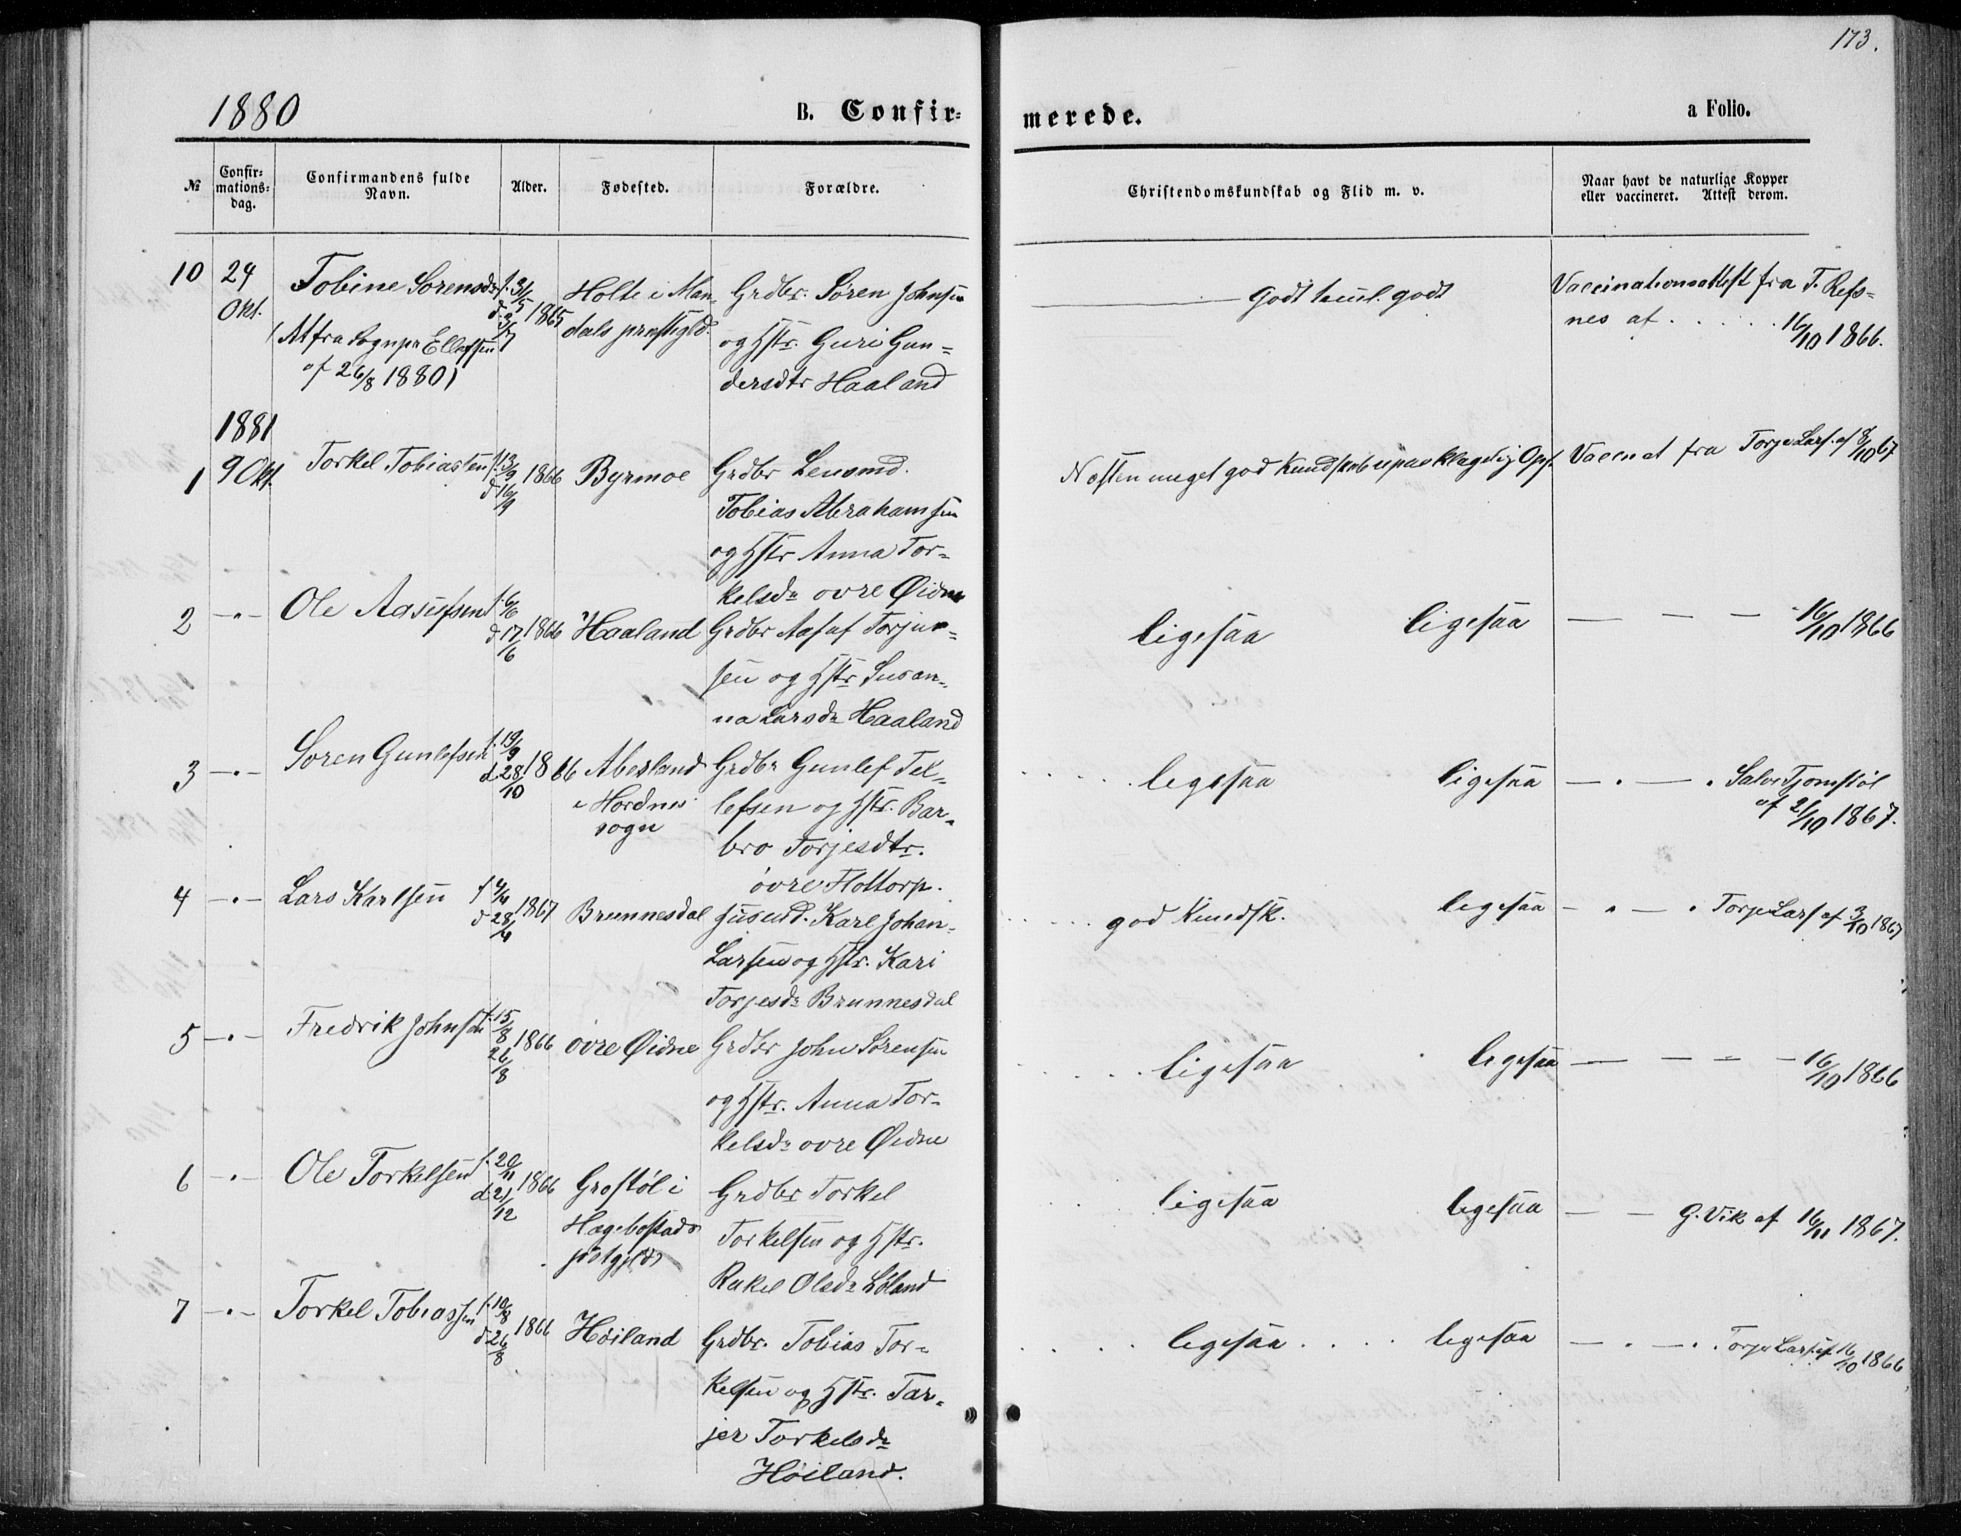 173.
1880 B. Confirmerede. a Folio.
№ Confirmations-dag. Confirmandens fulde Navn. Alder. Fødested. Forældre. Christendomskundskab og Flid m. v. Naar havt de naturlige Kopper eller vaccineret. Attest derom.
10 24 Okt. Tobine Sorensdr
(At fra Sognepr Ellefsen
af 26/8 1880)
1865
Holte i Man-
dals prestgjld.
Grdbr. Søren Johnsen
og Hstr. Guri Gun-
dersdtr Haaland
godt godt
Vaccinationsattest fra T. Refs-
nes af . . . . . 16/10 1866.
1881
1 9 Okt. Torkel Tobiassen
f. 13/9 d 16/9 1866
Byrmoe
Grdbr Lensmd.
Tobias Abrahamsen
og Hstr Anna Tor-
kelsdr ovre Øidne
Næsten meget god Kundskab upaaklagelig Opf.
Vacc. at fra Torje Lars. af 8/10 67
2 -„- Ole Aasufsen
f. 6/6 d 17/6 1866
Haaland
Grdbr Aasuf Torjus-
sen og Hstr Susan-
na Larsdr Haaland
ligesaa ligesaa — — — — 16/10 1866
3 -„- Soren Gunlefsen
f. 19/9 d. 28/10 1866
Abesland
i Hordnes
sogn
Grdbr Gunlef Tel-
lefsen og Hstr. Bar-
bro Torjesdtr.
øvre Holtorp.
ligesaa ligesaa — „ — „ Salve Tjomstøl
af 21/10 1867.
4 -„- Lars Karlsen
f 4/4 d 28/4 1867
Brunnesdal
Husmd. Karl Johan
Larsen og Hstr. Kari
Torjesdr Brunnesdal
god Kundsk. ligesaa — „ — „ Torje Lars af 3/10 1867
5 -„- Fredrik Johnsen
f. 15/8 26/8 1866
ovre Øidne
Grdbr John Sørensen
og Hstr. Anna Tor-
kelsdr ovre Øidne
ligesaa ligesaa — — — — 16/10 1866
6 -„- Ole Torkelsen
f. 20/11 d. 21/12 1866
Grostøl i
Hægebostads
pstgjld
Grdbr Torkel
Torkelsen og Hstr.
Rakel Olsdr Løland
ligesaa ligesaa — — G. Vik af 16/11 1867.
7 -„- Torkel Tobiassen
f. 10/8 d 26/8 1866
Høiland
Grdbr. Tobias Tor-
kelsen og Hstr. Tar-
jer Torkelsdr
Høiland.
ligesaa . . . . ligesaa — „ — „ Torje Lars. af 16/10 1866